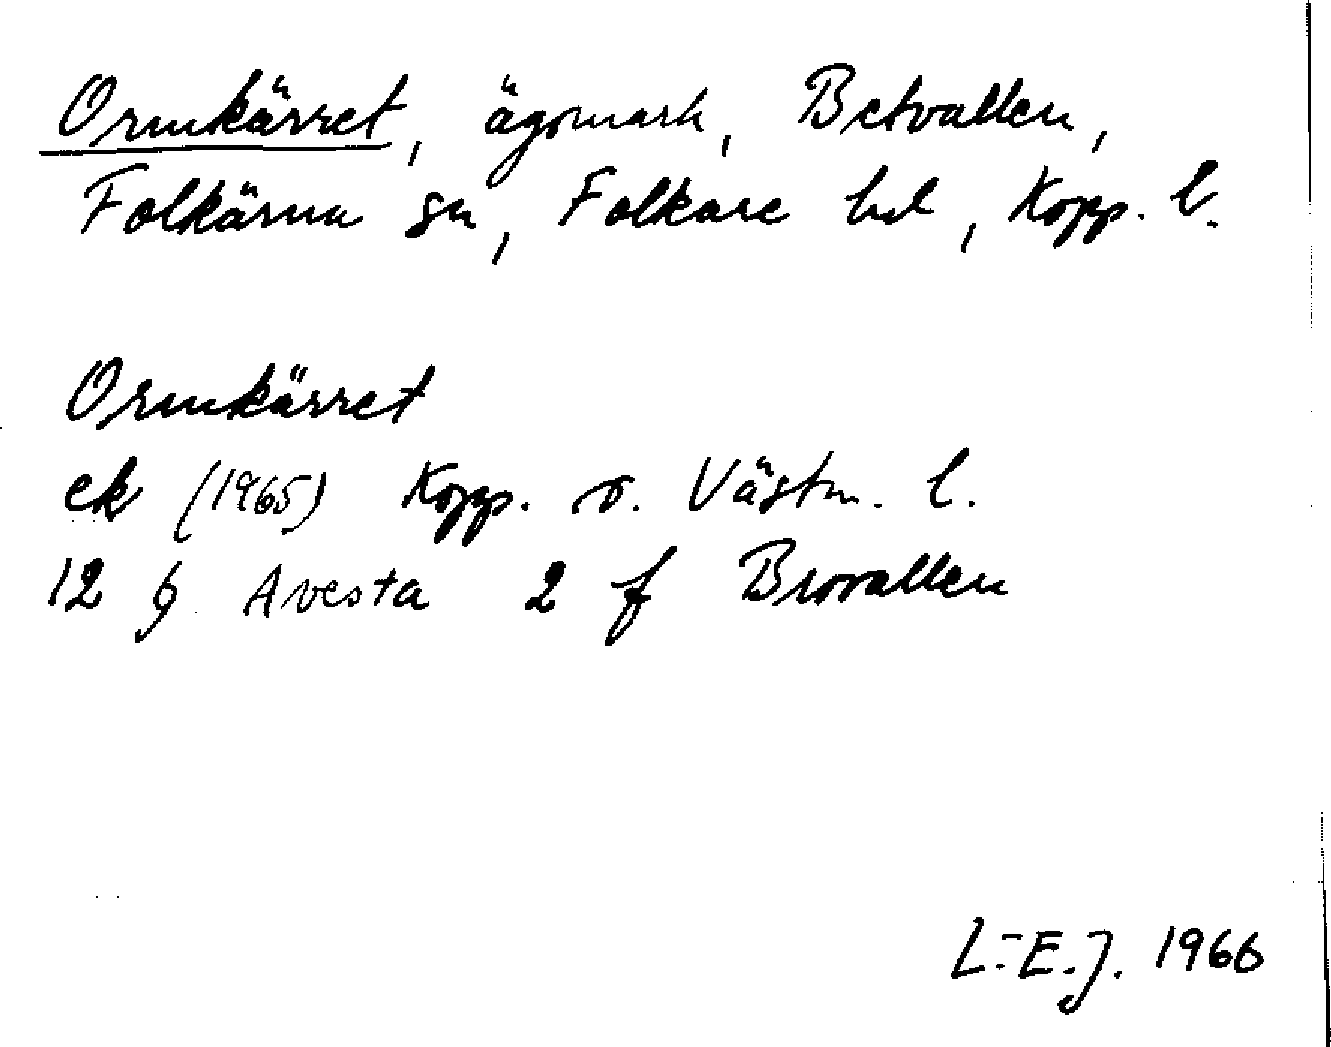 Ormkärret, ägomark, Betvallen,
Folkärna sn, Folkare hd, Kopp. l.
Ormkärret
ek (1965) Kopp. o. Västm. l.
12 G Avesta 2 f Brovallen
L.-E.J. 1966